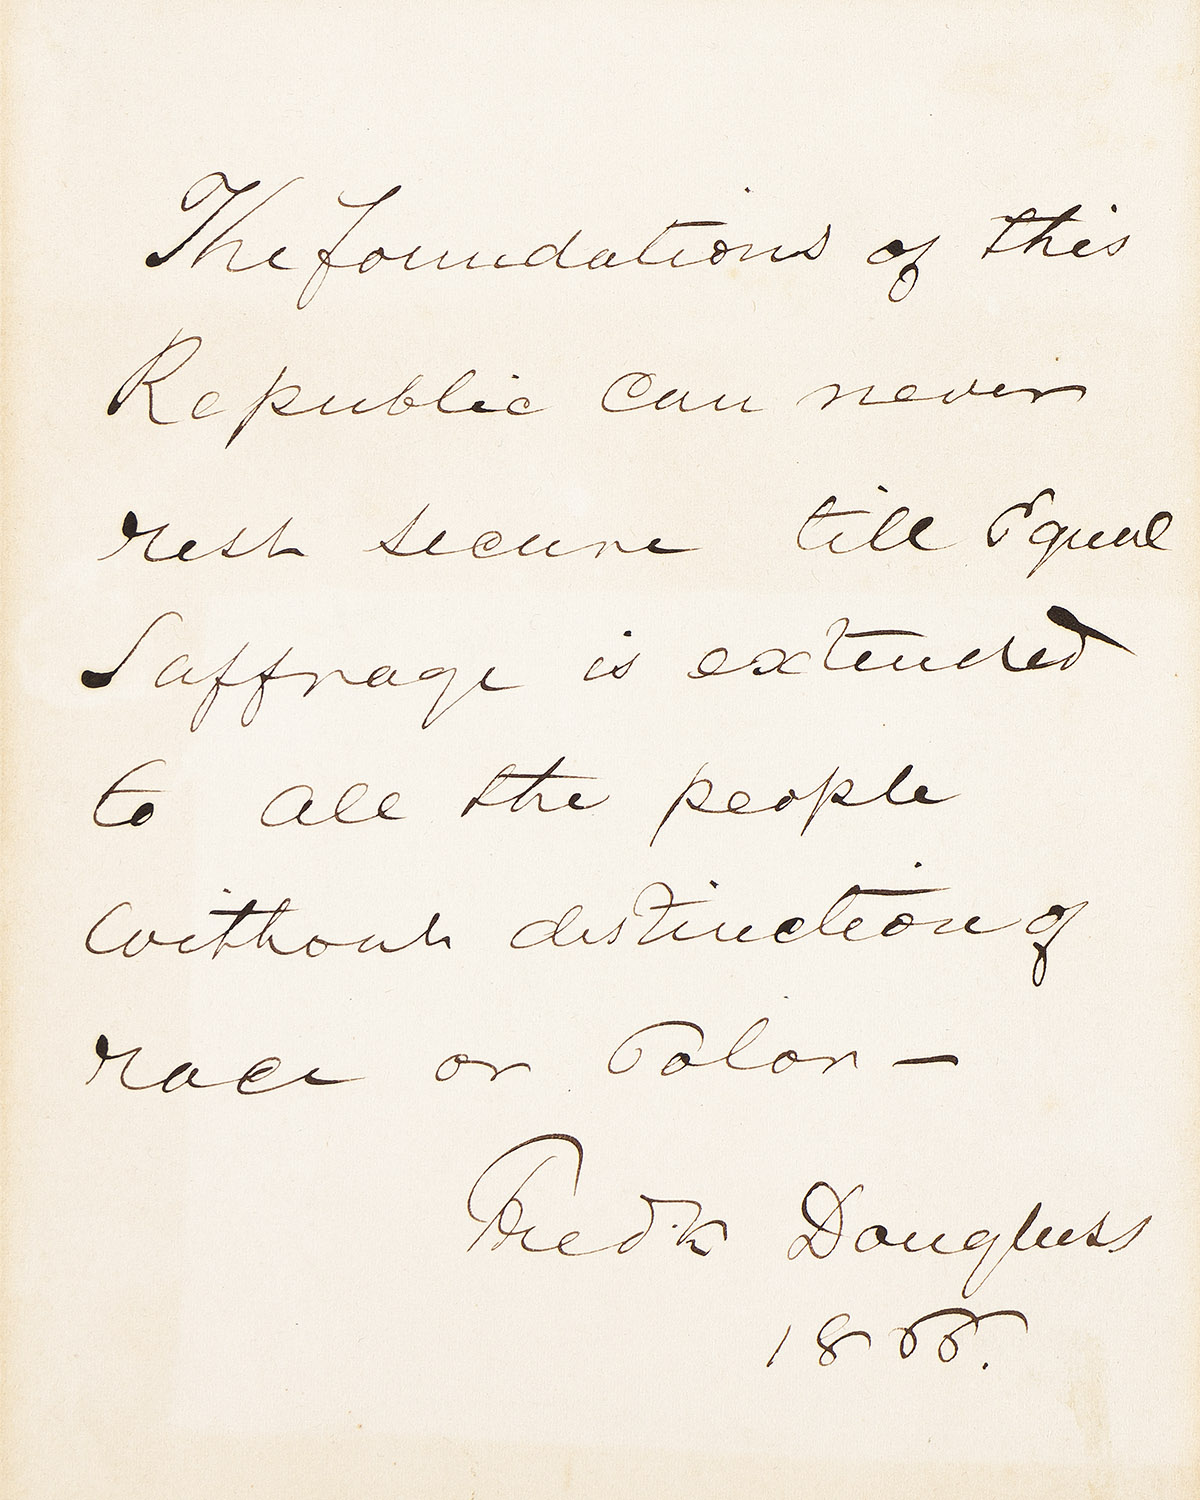 The foundations of this
Republic can never
rest secure till Equal
Suffrage is extended
to all the people
without distinction of
race or Color —
Fredk Douglass
1866.